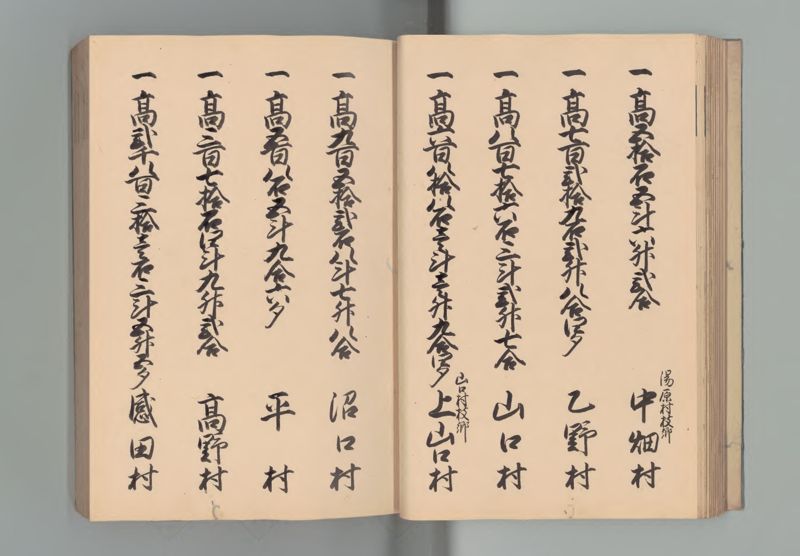 一高五拾石五斗六升弐合
湯原村枝郷
中畑村
一高七百弐拾九石弐升八合四夕
乙野村
一高八百七拾六石三斗弐升七合
山口村
一高六百八拾八石壱斗壱升九合四夕
山口村枝郷
上山口村
一高九百五拾弐石八斗七升八合
沼口村
一高五百八石五斗九合六夕
平村
一高三百七拾石四斗九升弐合
高野村
一高弐千八百三拾壱石三斗五升五夕
感田村